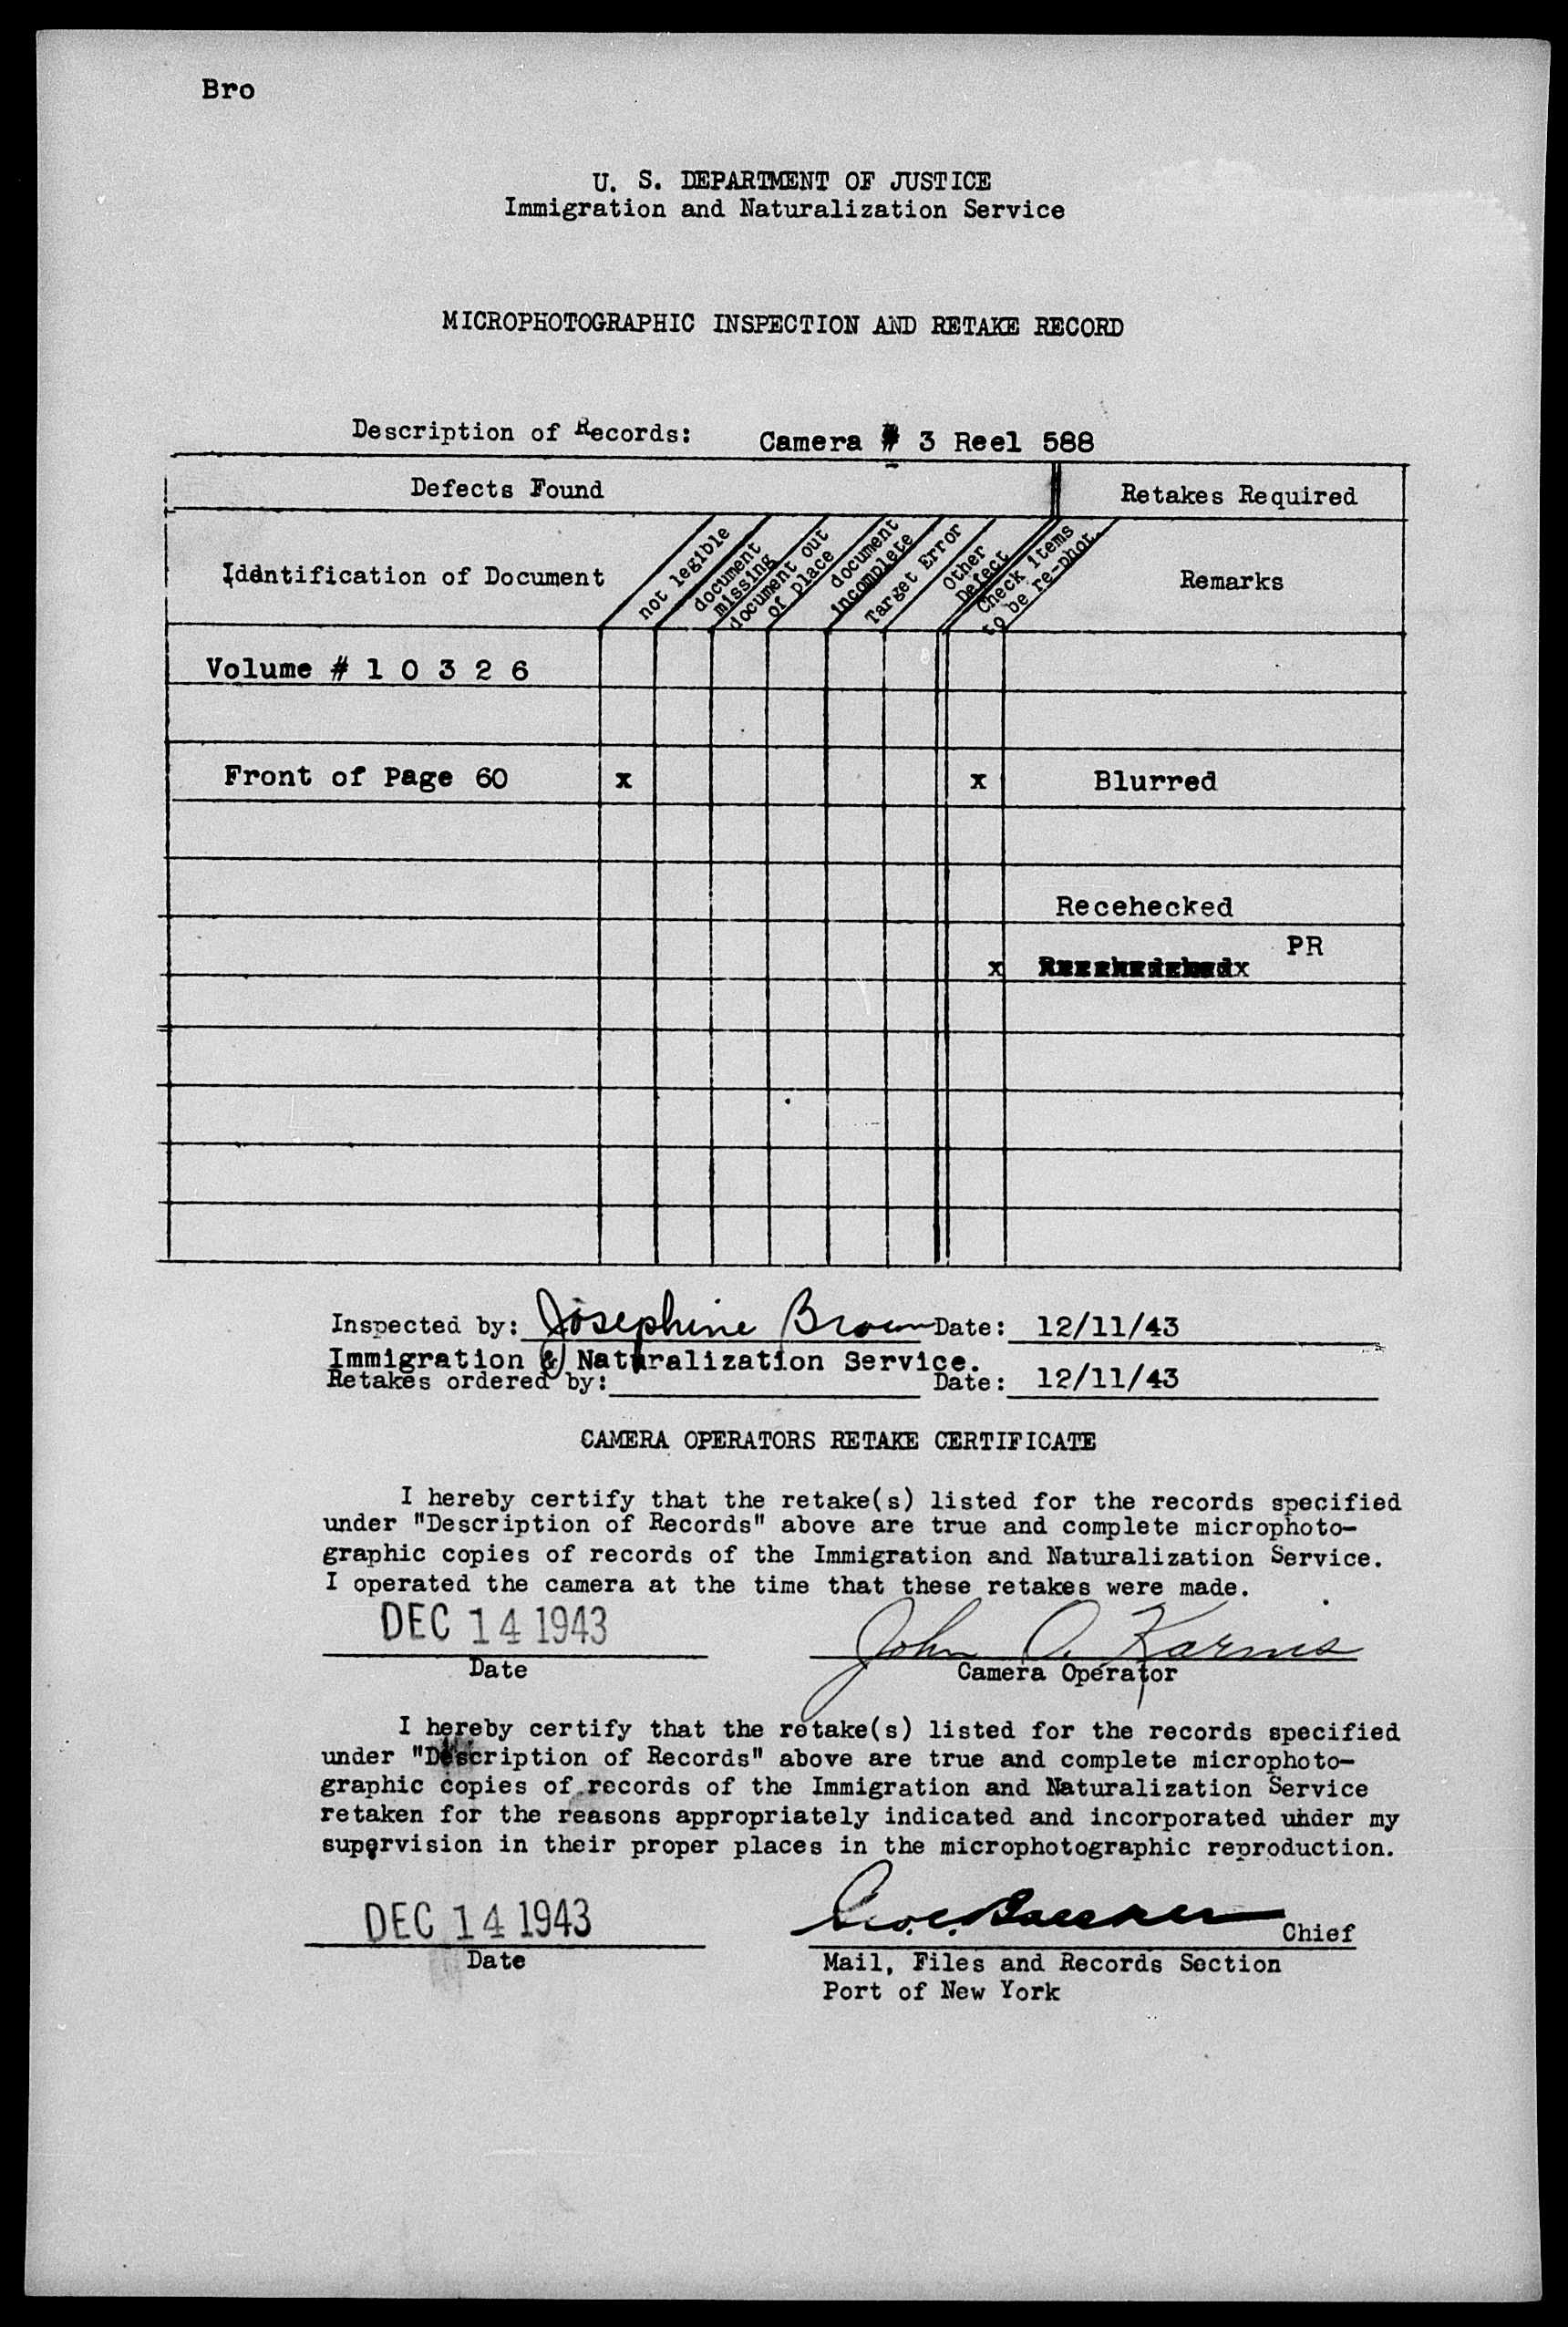 Bro
U. S. DEPARTMENT OF JUSTICE
Immigration and Naturalization Service
MICROPHOTOGRAPHIC INSPECTION AND RETAKE RECORD
Description of Records: Camera # 3 Reel 588
Defects Found
Retakes Required
Identification of Document
not legible
document
missing
document out
of place
document
incomplete
Target Error
Other
Defect
Check items
to be re-phot.
Remarks
Volume # 1 0 3 2 6
Front of Page 60 x x Blurred
Recehecked
PR
x
Inspected by: Josephine Brown Date: 12/11/43
Immigration & Naturalization Service.
Retakes ordered by: Date: 12/11/43
CAMERA OPERATORS RETAKE CERTIFICATE
I hereby certify that the retake(s) listed for the records specified
under "Description of Records" above are true and complete microphoto-
graphic copies of records of the Immigration and Naturalization Service.
I operated the camera at the time that these retakes were made.
DEC 14 1943 John O. Karms
Date Camera Operator
I hereby certify that the retake(s) listed for the records specified
under "Description of Records" above are true and complete microphoto-
graphic copies of records of the Immigration and Naturalization Service
retaken for the reasons appropriately indicated and incorporated under my
supervision in their proper places in the microphotographic reproduction.
DEC 14 1943 Chief
Date Mail, Files and Records Section
Port of New York